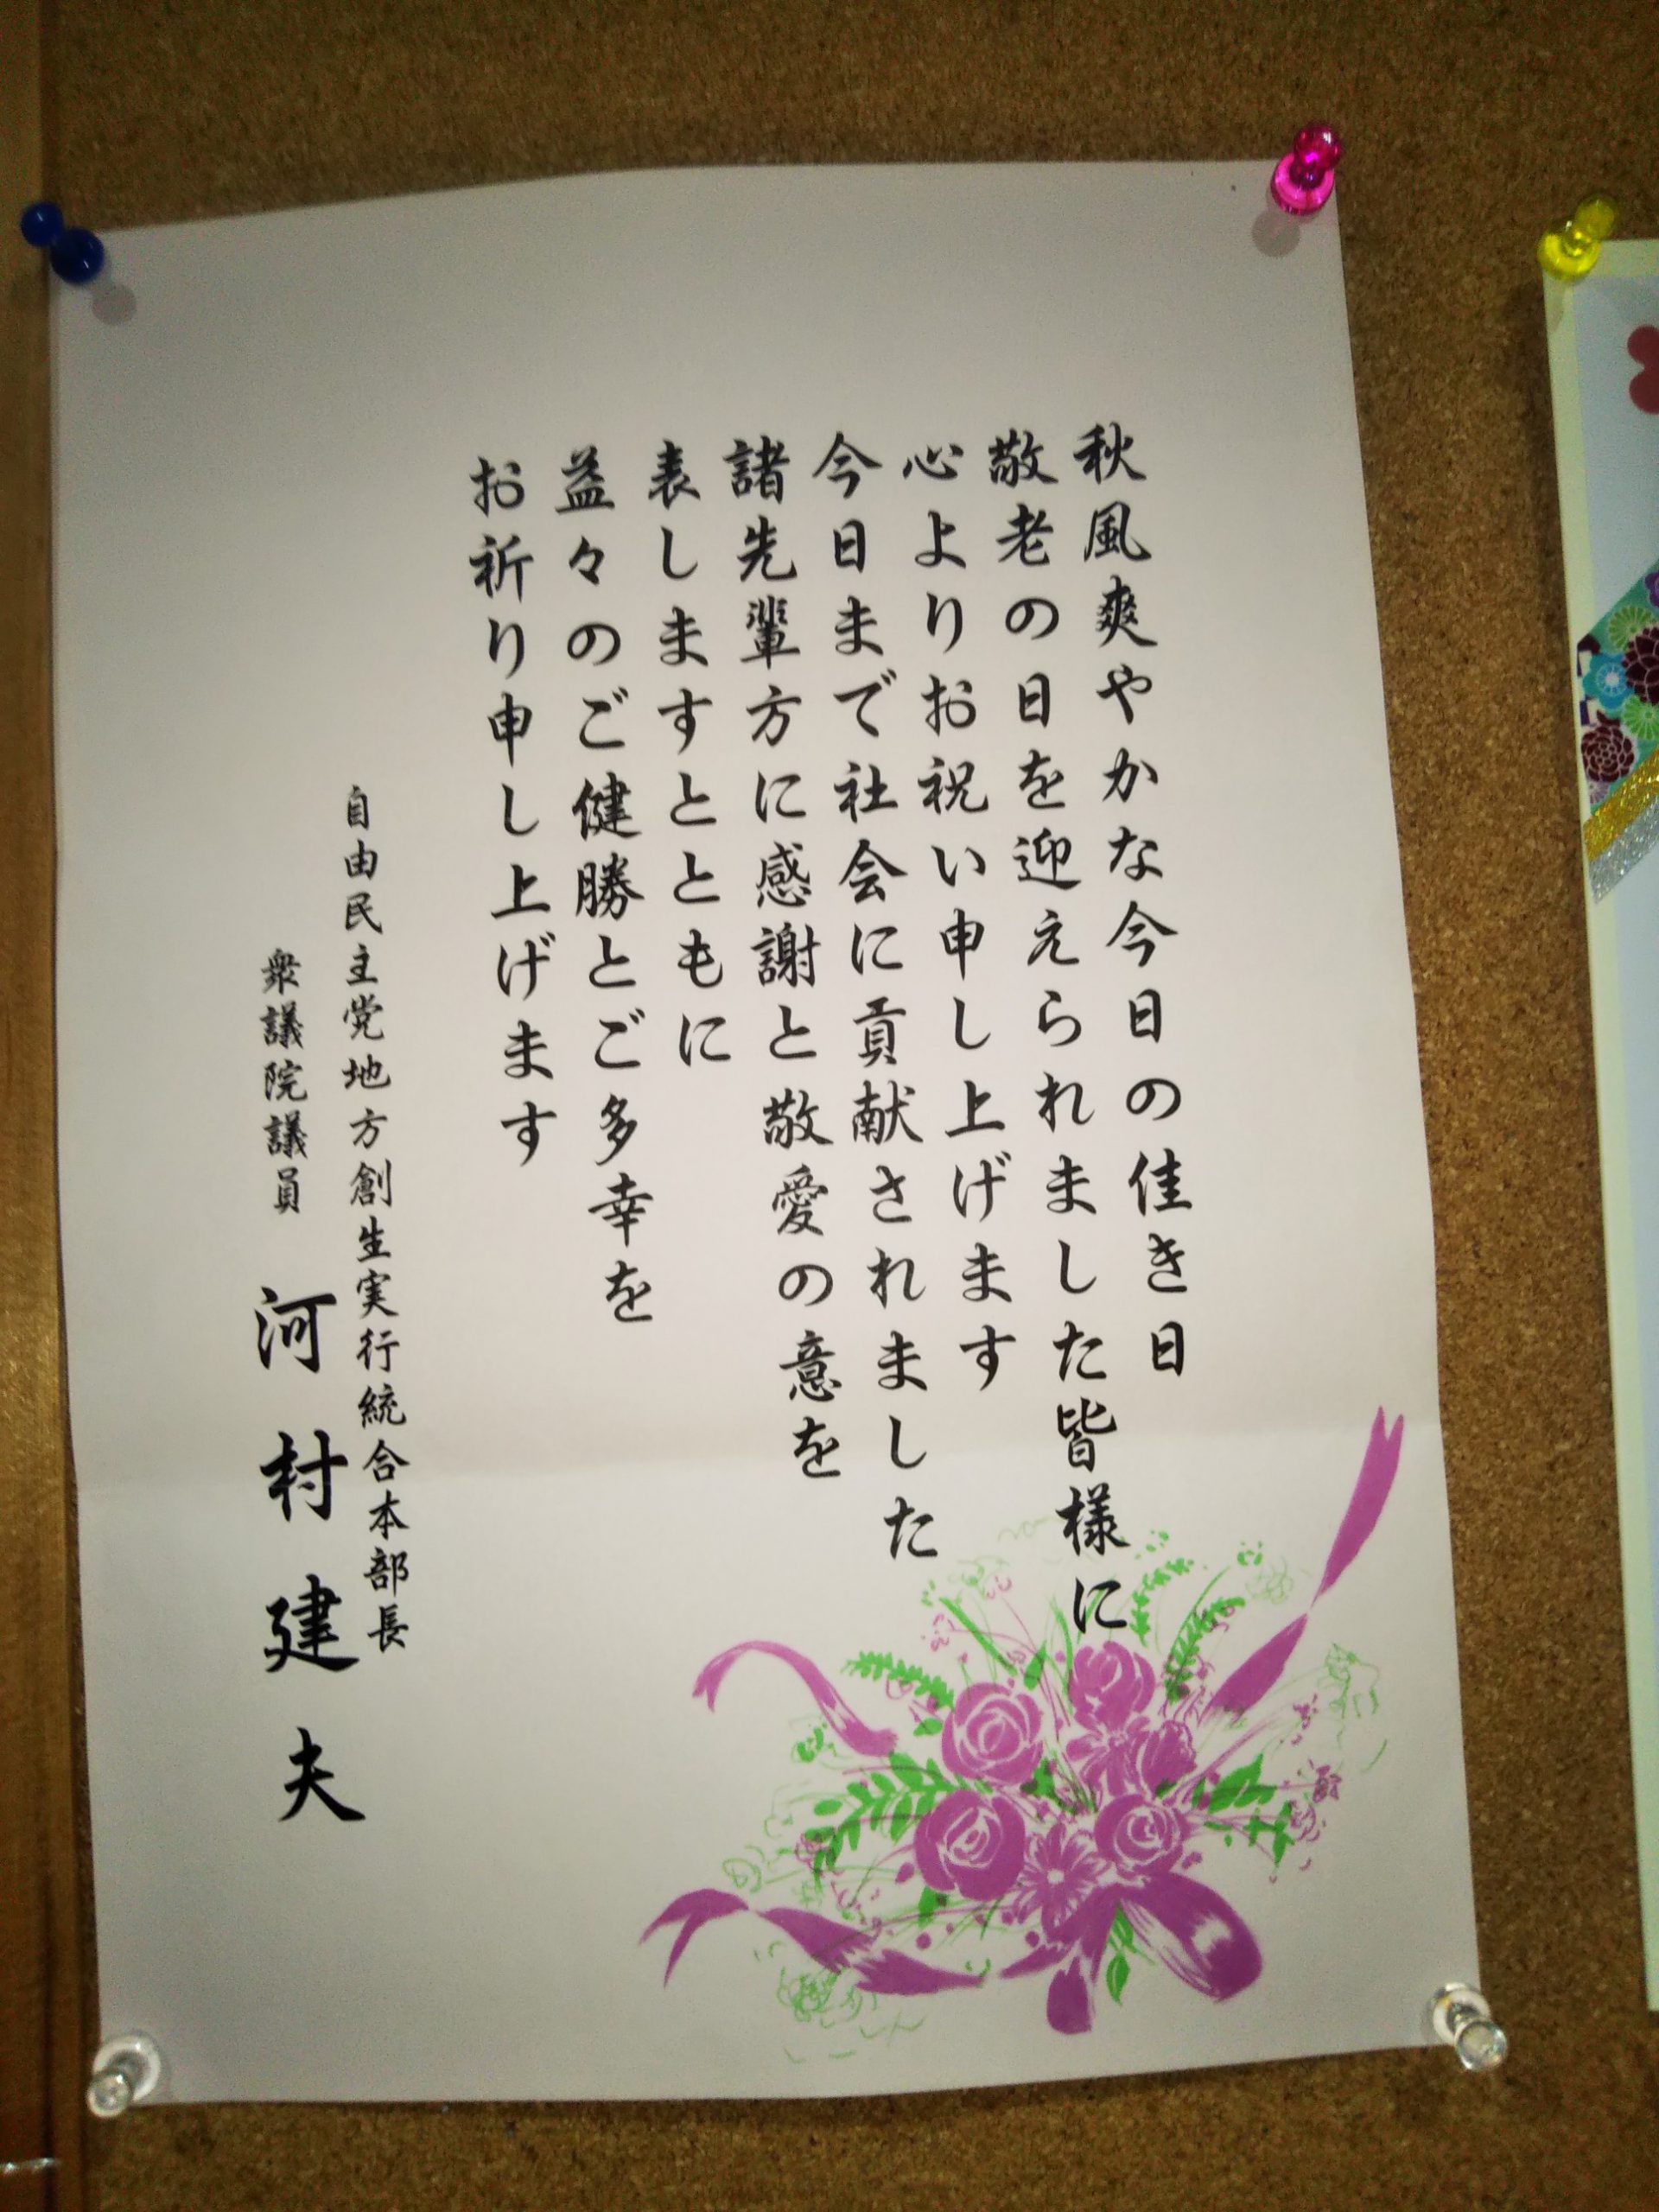 秋風爽やかな今日の佳き日
敬老の日を迎えられました皆様に
心よりお祝い申し上げます
今日まで社会に貢献されました
諸先輩方に感謝と敬愛の意を
表しますとともに
益々のご健勝とご多幸を
お祈り申し上げます
自由民主党地方創生実行統合本部長
衆議院議員 河村建夫